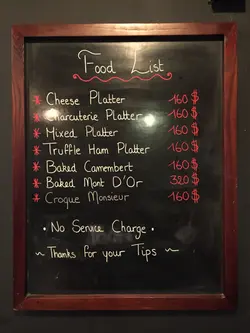 Food List
* Cheese Platter 160 $
* Charcuterie Platter 160 $
* Mixed Platter 160 $
* Truffle Ham Platter 160 $
* Baked Camembert 160 $
* Baked Mont D'Or 320 $
* Croque Monsieur 160 $
• No Service Charge •
~ Thanks for your Tips ~